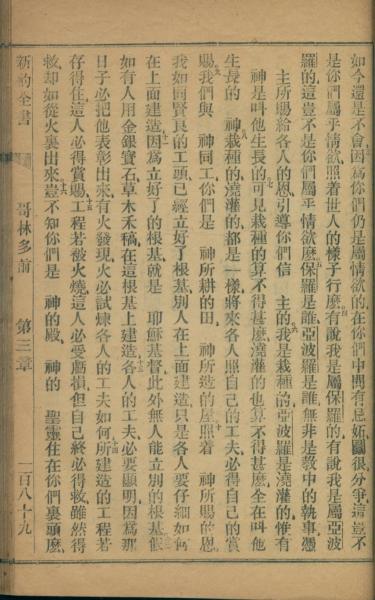 如今還是不會、因爲你們仍是屬情欲的、在你們中間有忌妬鬬很分爭、這豈不
是你們屬乎情欲、照着世人的樣子行麽、有說我是屬保羅的、有說我是屬亞波
羅的、這豈不是你們屬乎情欲麽、保羅是誰、亞波羅是誰、無非是敎中的執事、憑
主所賜給各人的恩、引導你們信 主的、我是栽種的、亞波羅是澆灌的、惟有
神是叫他生長的、可見栽種的算不得甚麽、澆灌的也算不得甚麽、全在叫他
生長的 神、栽種的、澆灌的、都是一樣、將來各人照自己的工夫、必得自己的賞
賜、我們與 神同工、你們是 神所耕的田、 神所造的屋、照着 神所賜的恩、
我如同賢良的工頭、已經立好了根基、別人在上面建造、只是各人要仔細如何
在上面建造、因爲立好了的根基、就是 耶穌基督、此外無人能立別的根基、假
如有人用金銀寶石草木禾稿、在這根基上建造、各人的工夫、必要顯明、因爲那
日子必把他表彰出來、有火發現、火必試煉各人的工夫如何、所建造的工程若
存得住、這人必得賞賜、工程若被火燒、這人必受虧損、但自己終必得救、雖然得
救、却如從火裏出來、豈不知你們是 神的殿、 神的 聖靈住在你們裏頭麽、
新約全書 哥林多前 第三章 一百八十九